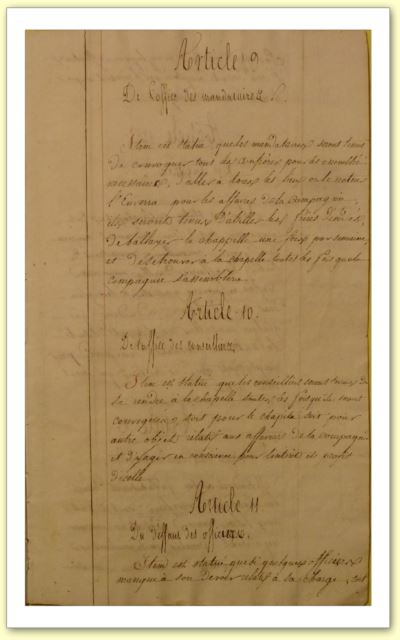 Article 9
De L'office des mandataires
Item est statué que les mandataires seront tenus
de convoquer tous les confrères pour les assemblées
necessaires, d'aller à tous les lieux ou le recteur
l'Enverra pour les affaires de la compagnie
ils seront tenus D'abiller les frères
de ballayer la chappelle une fois par semaine,
et de se trouver à la chapelle toutes les fois que la
compagnie s'assemblera
Article 10.
De l'office des conseillers
Item est statué que les conseillers seront tenus de
se rendre à la chapelle toutes les fois qu'ils seront
convoqués, soit pour le chapitre soit pour
autre objet relatif aux affaires de la compagnie
et d'y agir en conscience pour l'interêt et profit
d'icelle
Article 11
Du deffaut des officiers.
Item est statué que si quelques officiers
manque à son Devoir relatif à sa Charge, soit